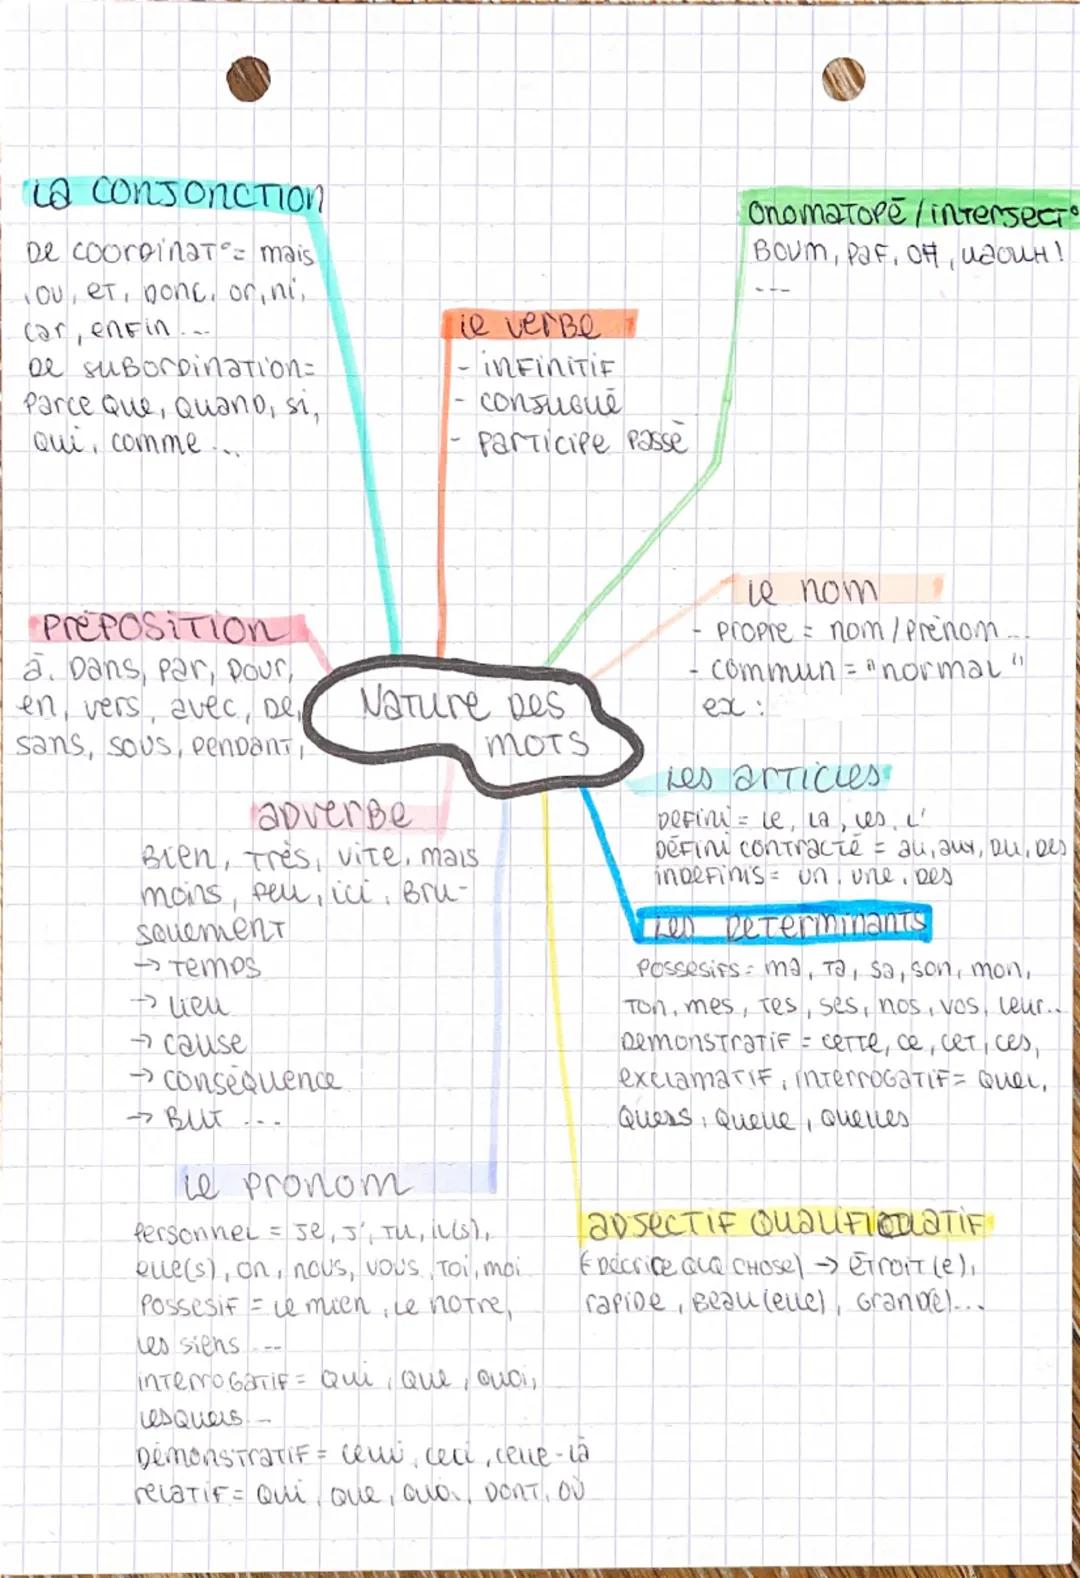 La conjonction
De coordinat° = mais
, ou, et, Donc, or, ni,
car, enfin ...
De subordination =
Parce que, Quand, si,
Qui, comme ...
Onomatopé / intersect°
Boum, Paf, Off, waouh !
---
Le verbe
- infinitif
- conjugué
- Participe Passé
Préposition
à, Dans, Par, Pour,
en, vers, avec, De,
sans, sous, Pendant,
Le nom
- Propre = nom / Prénom ...
- commun = "normal"
ex :
Nature Des
mots
Les articles
Défini = Le, La, Les, L'
Défini contracté = au, aux, Du, Des
indéfinis = un, une, Des
Les Determinants
Possesifs = ma, Ta, sa, son, mon,
Ton, mes, Tes, ses, nos, vos, leur...
Demonstratif = cette, ce, cet, ces,
exclamatif, interrogatif = Quel,
Quels, Quelle, Quelles
adverbe
Bien, Très, vite, mais
moins, Peu, ici, Bru-
squement
→ Temps
→ Lieu
→ cause
→ conséquence
→ But ...
Le Pronom
Personnel = Je, J', Tu, il(s),
elle(s), on, nous, vous, Toi, moi
Possesif = Le mien, Le notre,
Les siens ...
interrogatif = Qui, Que, Quoi,
Lesquels ...
Démonstratif = celui, ceci, celle-là
relatif = Qui, Que, Quoi, Dont, Où
adjectif Qualificatif
(Décrire QLQ chose) → étroit(e),
rapide, Beau(elle), Grand(e)...